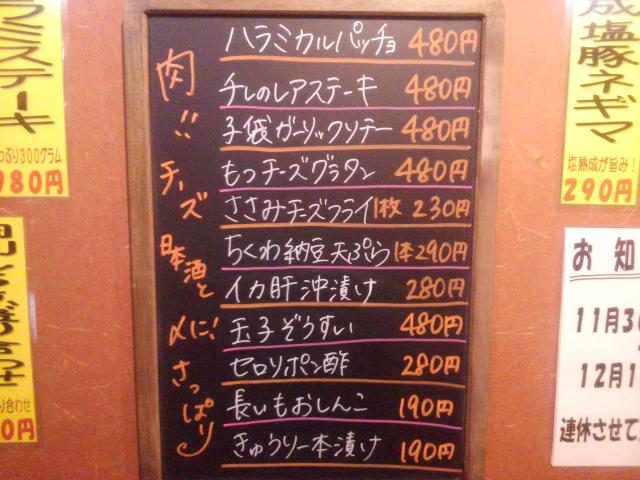 ハラミカルパッチョ 480円
チレのレアステーキ 480円
子袋ガーリックソテー 480円
もつチーズグラタン 480円
ささみチーズフライ 1枚 230円
ちくわ納豆天ぷら 1本 290円
イカ肝沖漬け 280円
玉子ぞうすい 480円
セロリポン酢 280円
長いもおしんこ 190円
きゅうり一本漬け 190円
肉!!
チーズ
日本酒と
〆に!
さっぱり
ラミステーキ
っぷり300グラム
980円
り合わせ
0円
成塩豚ネギマ
塩熟成が旨み!
290円
お知
11月3
12月1
連休させて